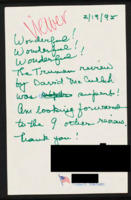 2/19/92
Wonderful!
Wonderful!
Wonderful!
The Truman review
by David McCulloh
was superb!
Am looking forward
to the 9 other reviews
Thank you!